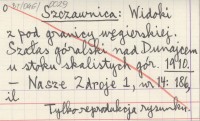 0029
Szczawnica: Widoki
z pod granicy węgierskiej.
Szałas góralski nad Dunajcem
u stoku skalistych gór. 1910.
— Nasze Zdroje 1, nr 14: 186,
il
Tylko reprodukcja rysunku.